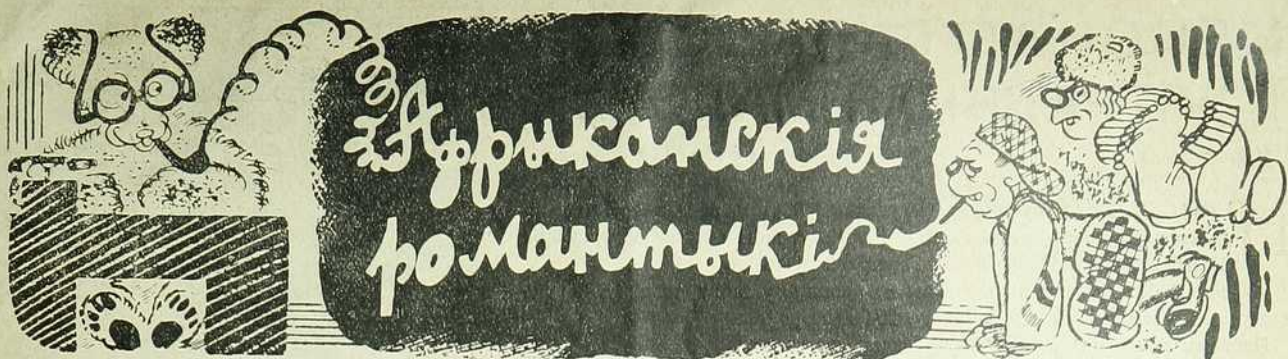 Афрыканскія
романтыкі